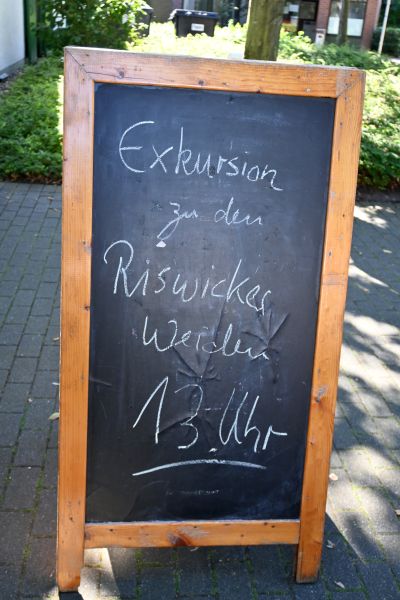 Exkursion
zu den
Riswicker
Weiden
13 Uhr